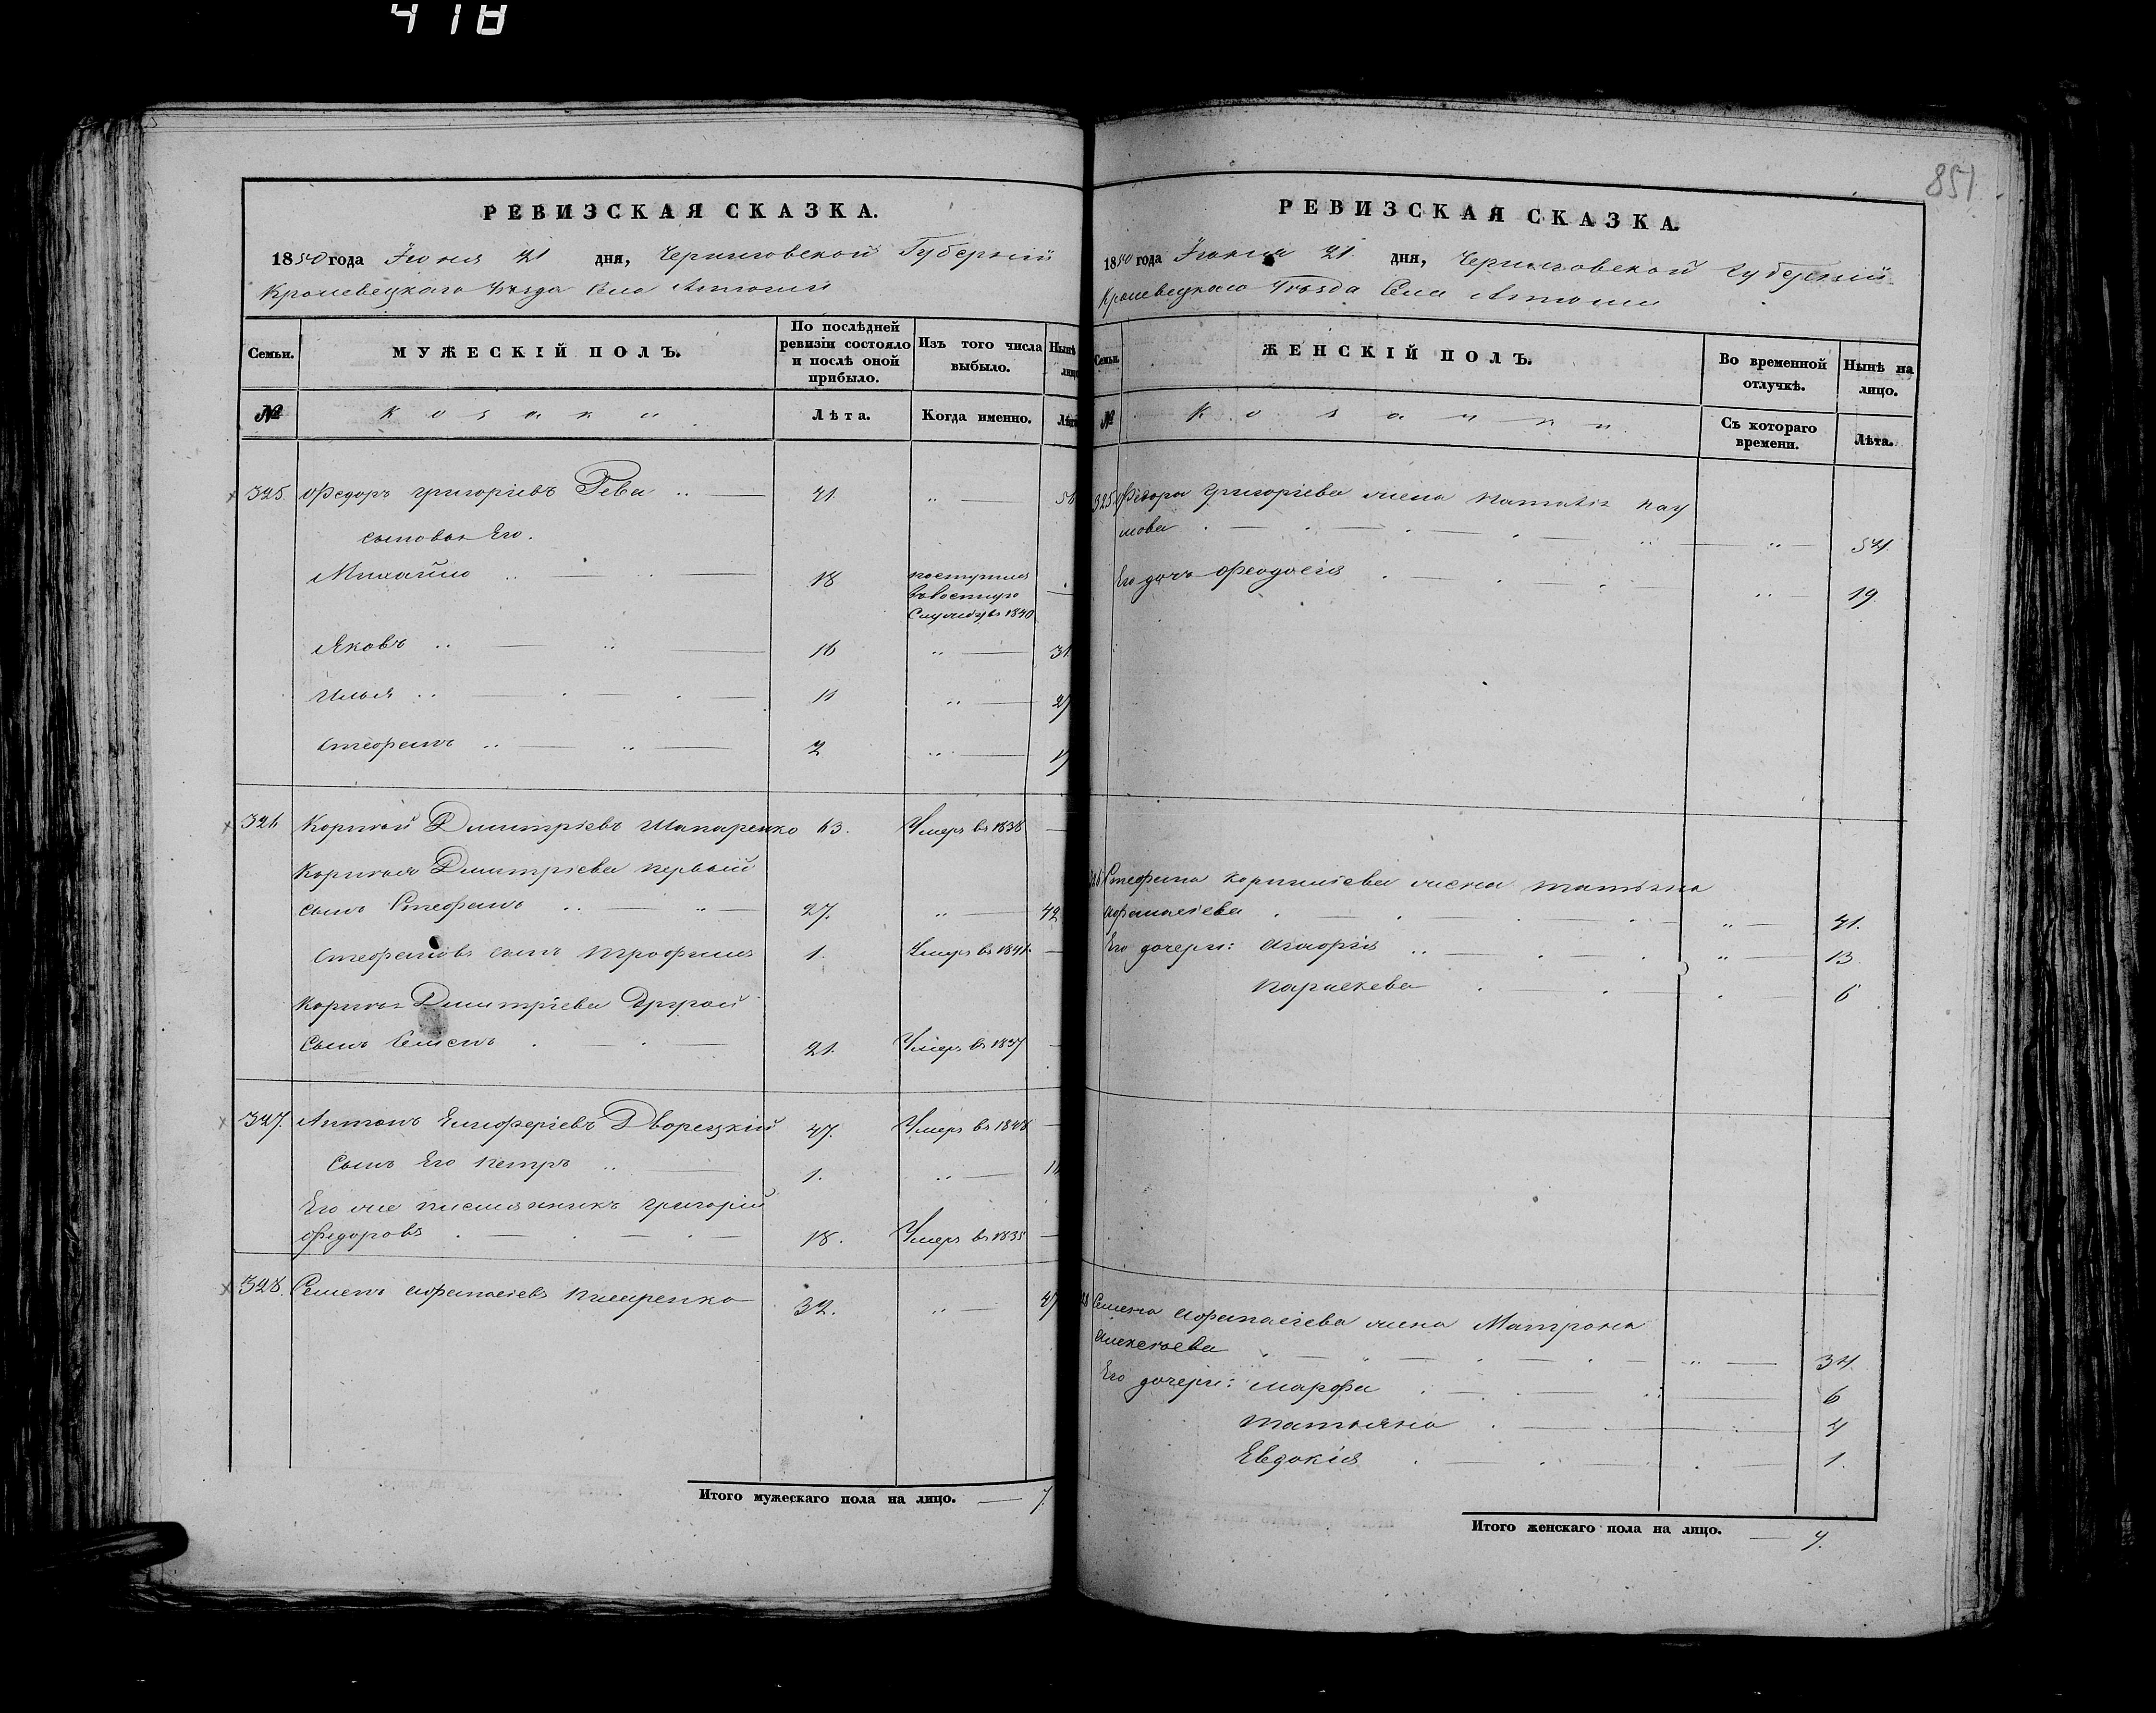 418
851
РЕВИЗСКАЯ СКАЗКА.
1850 года Июня 21 дня, Черниговской Губерніи
Кролевецкаго Уѣзда Села
Семьи.
МУЖЕСКІЙ ПОЛЪ.
По послѣдней ревизіи состояло и послѣ оной прибыло.
Изъ того числа выбыло.
Нынѣ
№
Козаки
Лѣта.
Когда именно.
325. Федоръ Григоріевъ Рева 41
сыновья Его.
Михайло 18 поступил в военную службу в 1840
Яковъ 16 31
Илья 11
Стефанъ 2
326 Корнѣй Димитріевъ Шапаренко 63. Умеръ въ 1838
Корнѣя Димитріева первый
сынъ Стефанъ 27. 42
Стефановъ сынъ Трофимъ 1. Умеръ въ 1841.
Корнѣя Димитріева другой
сынъ Семенъ 21. Умеръ въ 1837
327. Антонъ Елифѣріевъ Дворецкій 47. Умеръ въ 1848
Сынъ Его Петръ 1.
Его же племянникъ Григорій
Федоровъ 18. Умеръ въ 1835
328. Семенъ Афанасіевъ 32. 47
Итого мужескаго пола на лицо. 7.
РЕВИЗСКАЯ СКАЗКА.
1850 года Июня 21. дня, Черниговской Губерніи
Кролевецкаго Уѣзда Села
Семьи.
ЖЕНСКІЙ ПОЛЪ.
Во временной отлучкѣ.
Нынѣ на лицо.
№
Козачки
Съ котораго времени.
Лѣта.
325 Федора Григоріева жена Наталія Нау
мова 54.
Его дочь Феодосія 19.
Стефана Корниліева жена Татьяна
Афанасіева 41.
Его дочери: Агафія 13
Параскева 6
Семена Афанасіева жена Матрона
Алексѣева 34.
Его дочери: Марфа 6
Татьяна 4
Евдокія 1.
Итого женскаго пола на лицо.